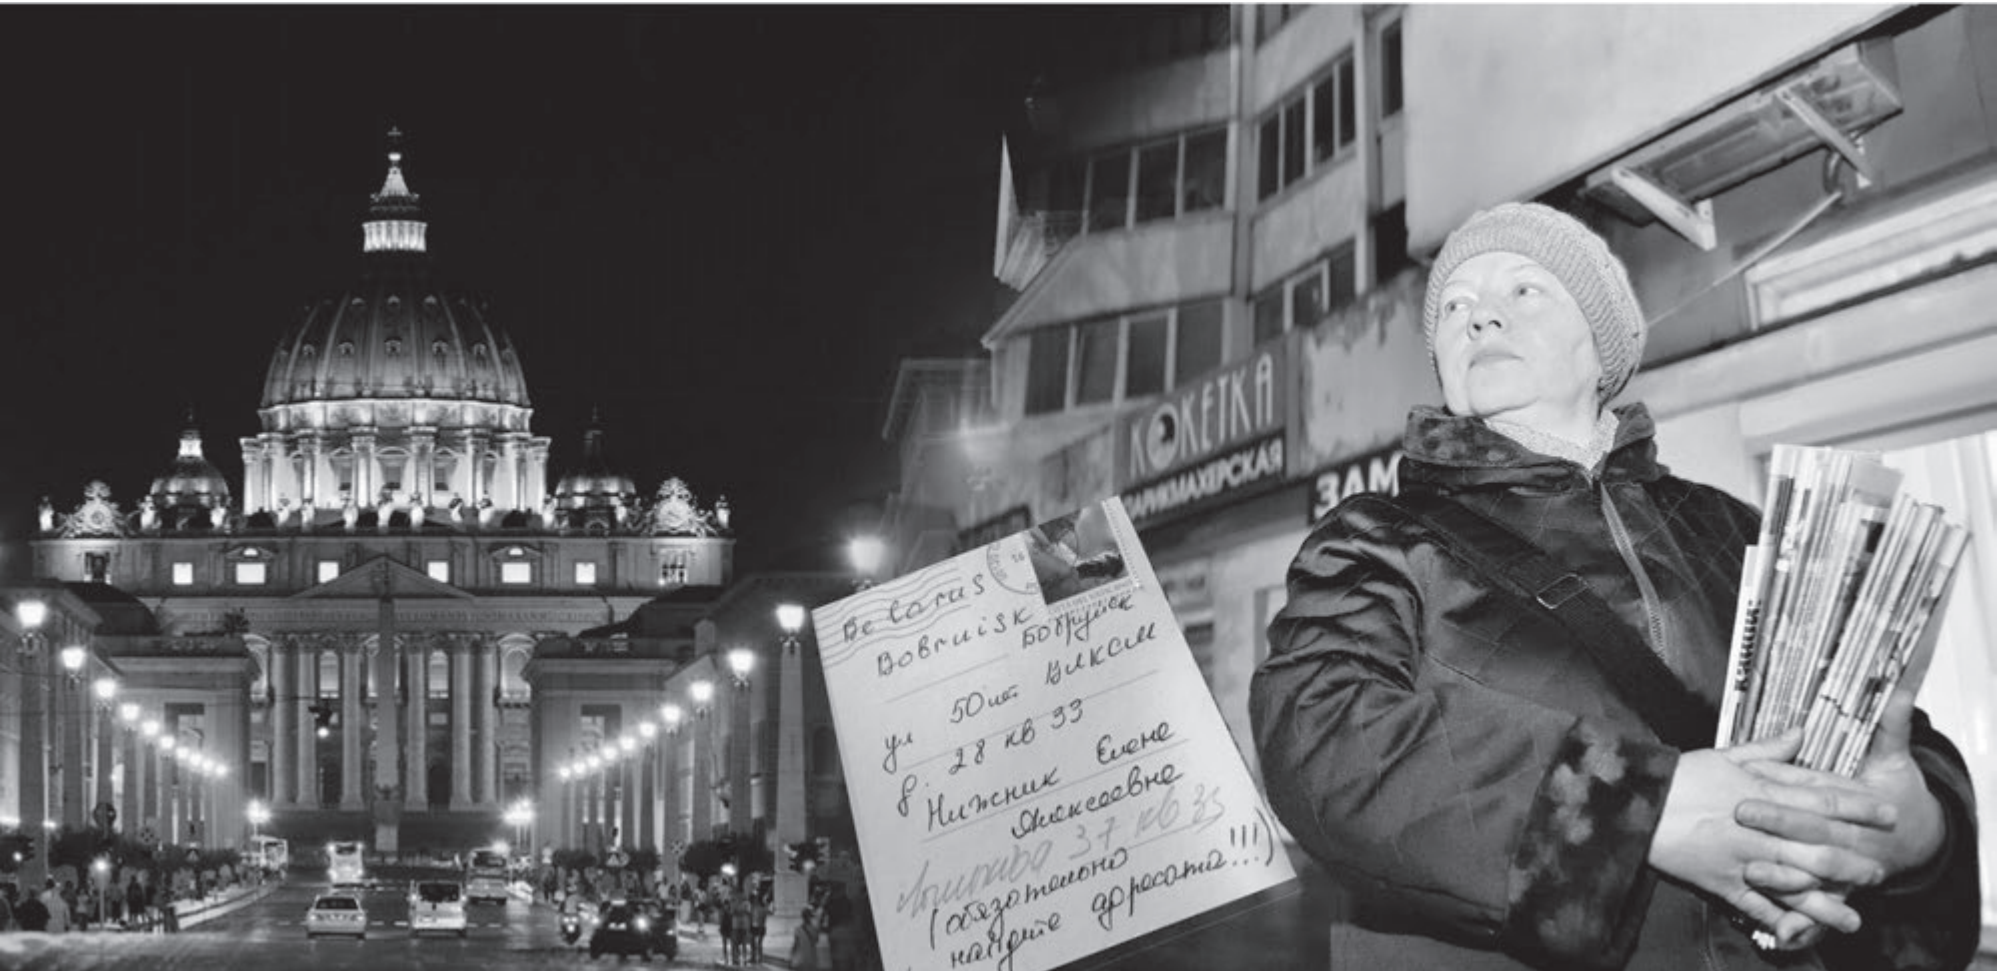 КОКЕТКА
ПАРИКМАХЕРСКАЯ
ЗАМ
Belarus
Bobruisk Бобруйск
ул 50 лет ВЛКСМ
д. 28 кв 33
Нижник Елене
Алексеевне
37 кв 35
(обязательно
найдите адресата!!!)